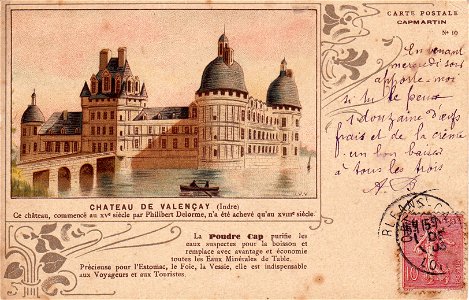 CARTE POSTALE
CAPMARTIN
Nº 10
En venant
mercredi soir
apporte-moi
si tu le peux
1 douzaine d'œufs
frais et de la crème
un bon baiser
à tous les trois
CHATEAU DE VALENÇAY (Indre)
Ce château, commencé au XVe siècle par Philibert Delorme, n'a été achevé qu'au XVIIIe siècle.
La Poudre Cap purifie les
eaux suspectes pour la boisson et
remplace avec avantage et économie
toutes les Eaux Minérales de Table.
Précieuse pour l'Estomac, le Foie, la Vessie, elle est indispensable
aux Voyageurs et aux Touristes.
10